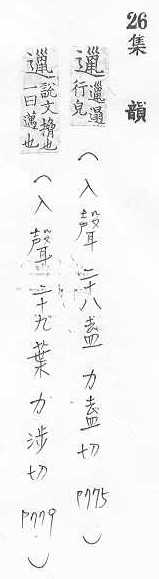 26集 韻
邋邋遢行皃（入聲二十八盍 力盍切 P775）
邋說文搚也一曰邁也（入聲二十九葉 力涉切 P779）